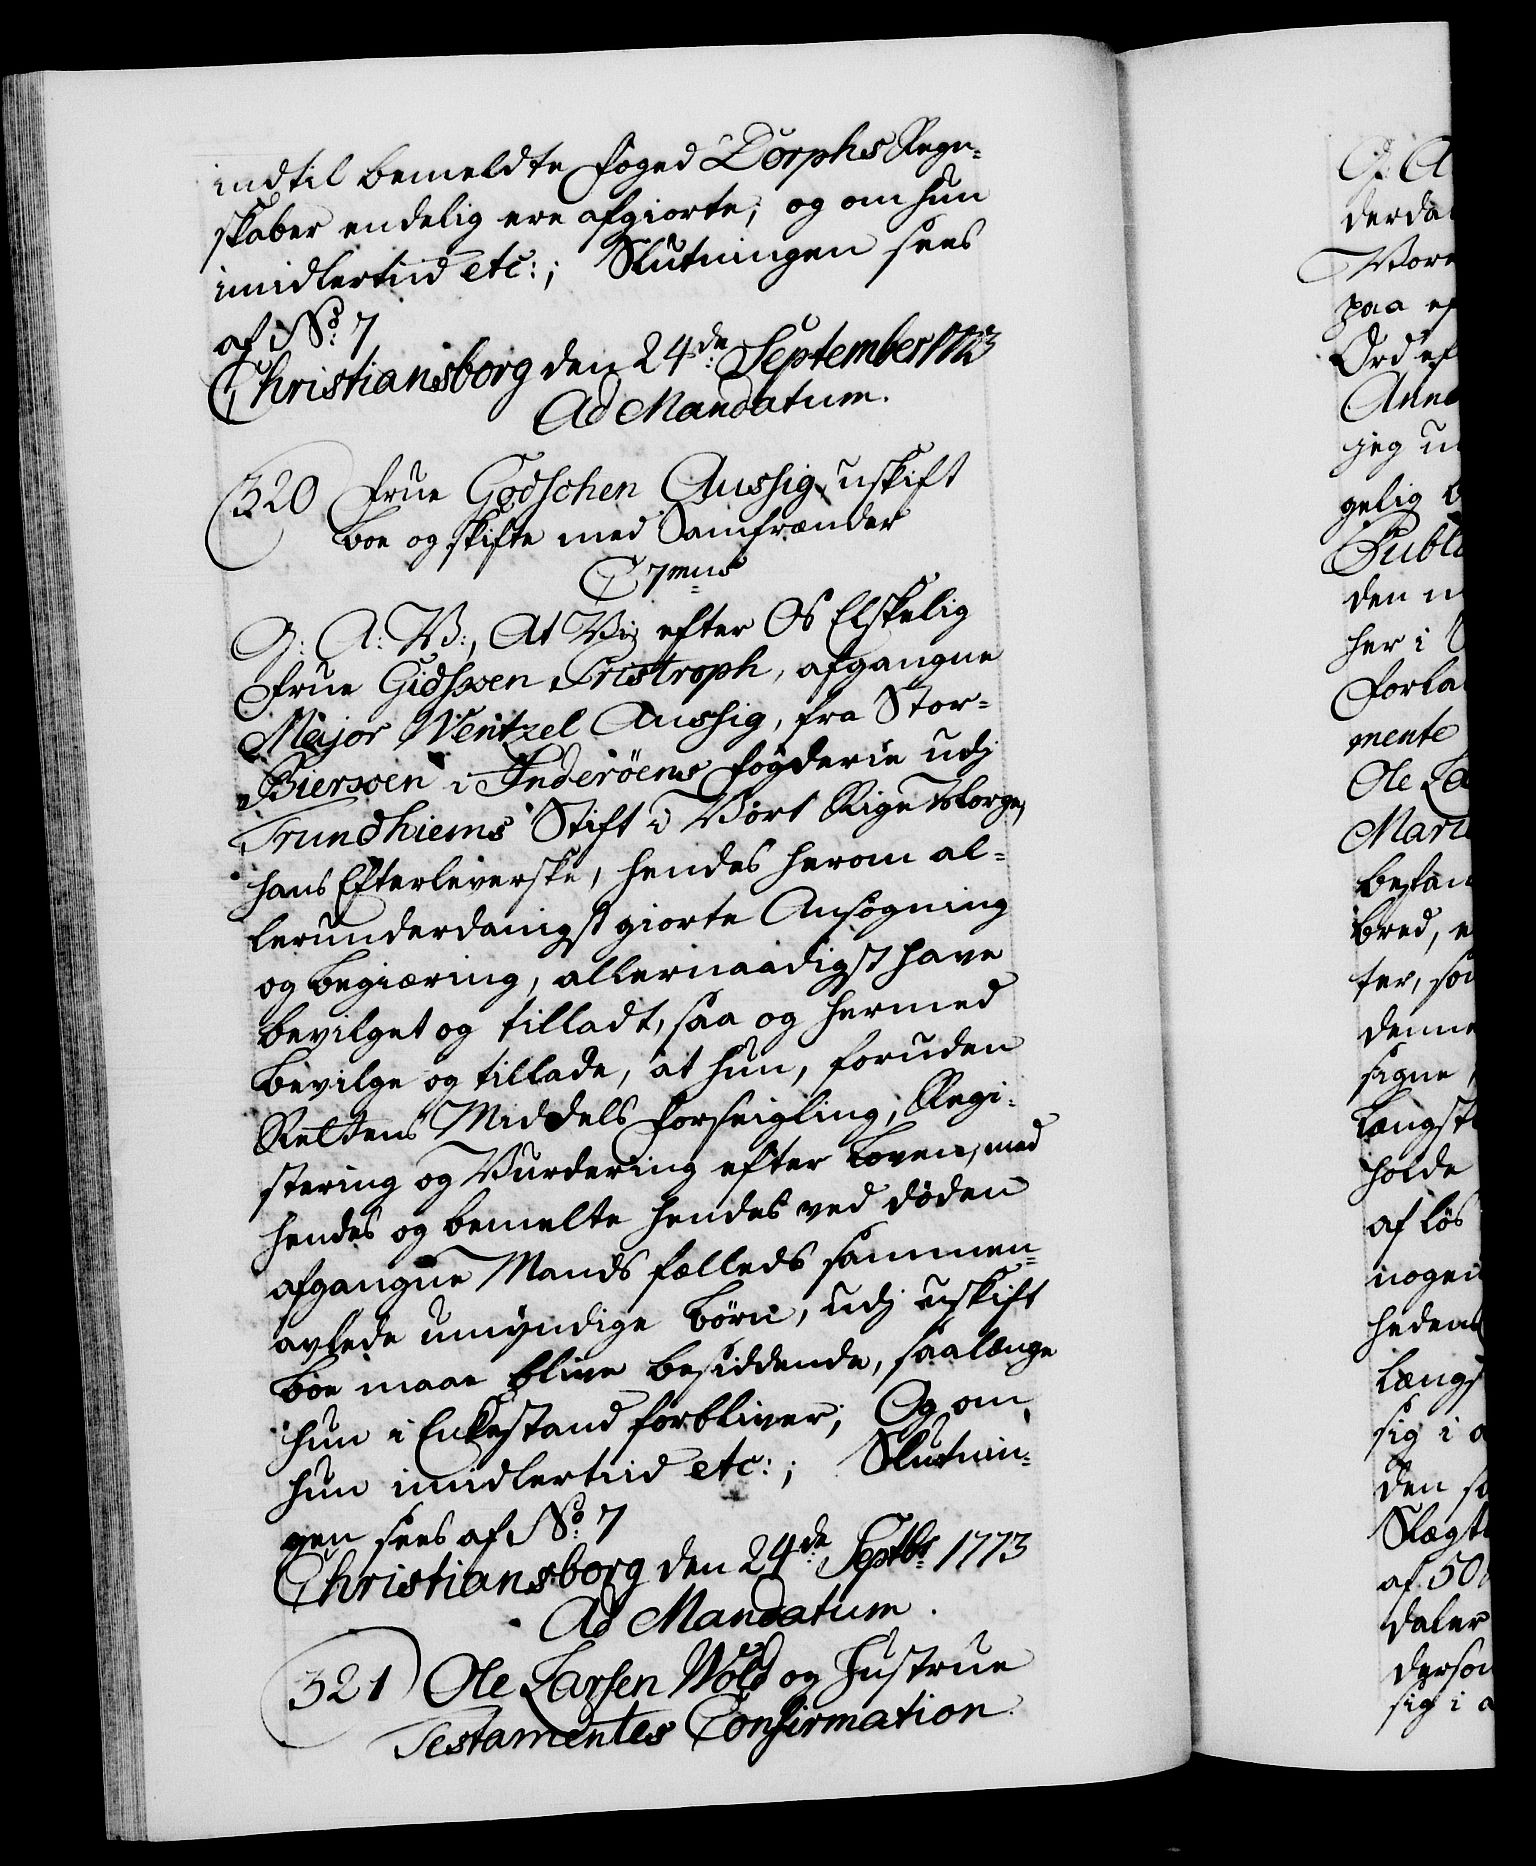 indtil bemeldte Foged Dorphs Regn-
skaber endelig ere afgiorte; og om hun
imidlertiid etc:; Slutningen sees
af No: 7
Christiansborg den 24de September 1773
Ad Mandatum.
320 Frue Godschen Aussig uskift
Boe og skifte med Samfrænder
C 7mus
G: A: V:, At Vi efter Os Elskelig
Frue Gidsken Tristroph, afgangne
Major Wentzel Aussig, fra Stor-
Biersven i Inderöens Fogderie udj
Trundhiems Stift i Vort Rige Norge,
hans Efterleverske, hendes herom al-
lerunderdanigst giorte Ansøgning
og begiæring, allernaadigst have
bevilget og tilladt, saa og hermed
bevilge og tillade, at hun, foruden
Rettens Middels Forseigling, Regi-
stering og Vurdering efter Loven, med
hendes og bemelte hendes ved Døden
afgangne Mands fælleds sammen-
avlede umyndige Børn, udj uskift
Boe maae blive besiddende, saalænge
hun i Enkestand forbliver; Og om
hun imidlertiid etc:; Slutnin-
gen sees af No: 7
Christiansborg den 24de Septbr 1773
Ad Mandatum.
321 Ole Larsen Wold og Hustrue
Testamentes Confirmation.
G: A
derda
Vore
paa ef
Ord ef
Anno
jeg u
gelig
Publ
den
her i
Forla
mente
Ole La
Mari
bestan
bred, e
ter, so
denne
signe
Længst
holde
af løs
nogen
hedens
Længs
sig i a
den so
Slægt
af 50
daler
derso
sig i a